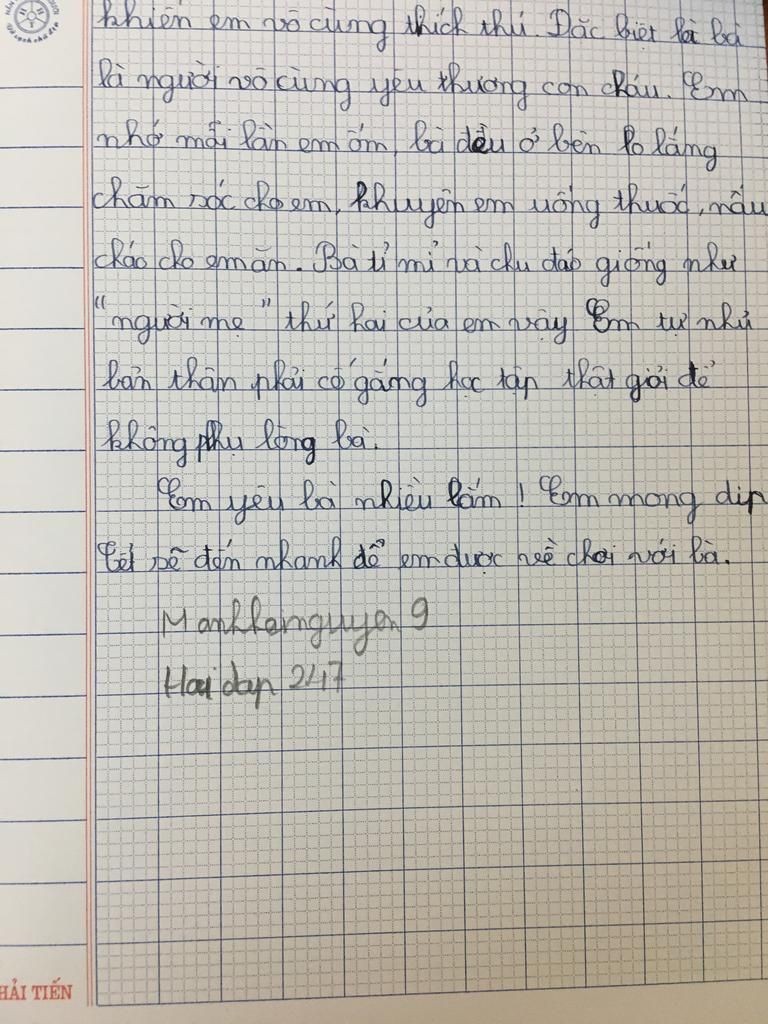 khiến em vô cùng thích thú. Đặc biệt là bà
là người vô cùng yêu thương con cháu. Em
nhớ mỗi lần em ốm, bà đều ở bên lo lắng
chăm sóc cho em, khuyên em uống thuốc, nấu
cháo cho em ăn. Bà tỉ mỉ và chu đáo giống như
"người mẹ" thứ hai của em vậy Em tự nhủ
bản thân phải cố gắng học tập thật giỏi để
không phụ lòng bà.
Em yêu bà nhiều lắm! Em mong dịp
Tết sẽ đến nhanh để em được về chơi với bà.
Manhhanguyen 9
Hoi dap 247
HẢI TIẾN